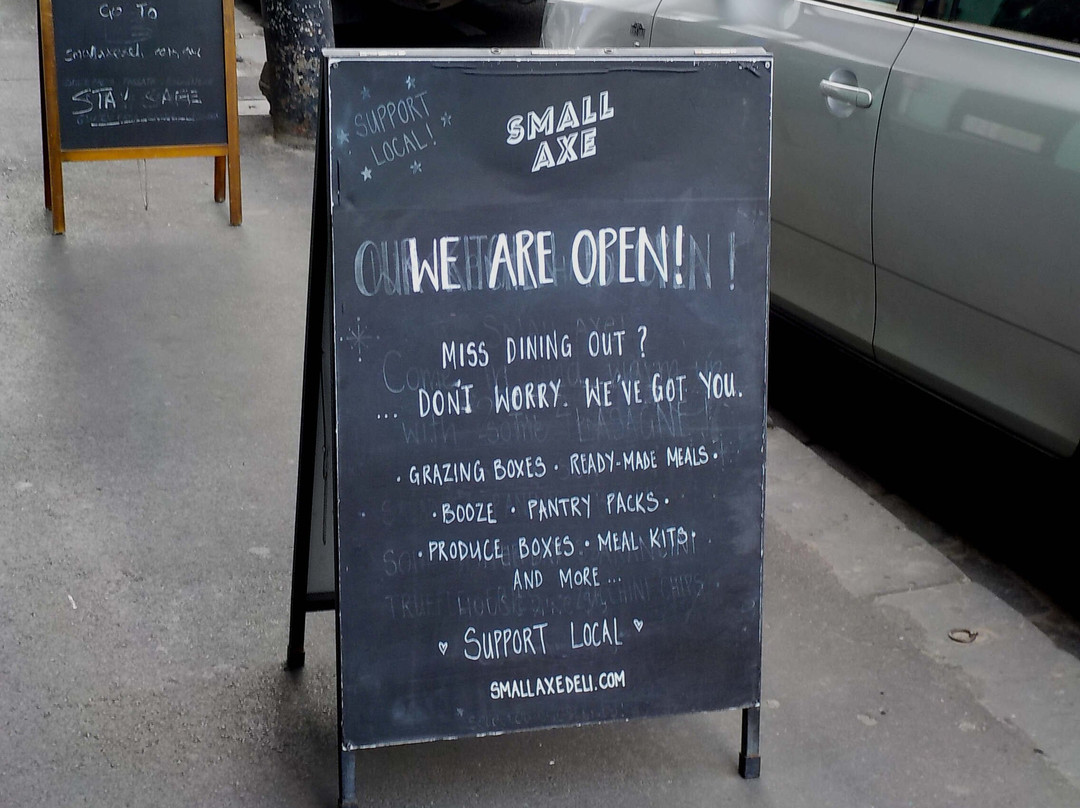 GO TO
STAY SAFE
SUPPORT
LOCAL!
SMALL
AXE
WE ARE OPEN!
MISS DINING OUT ?
... DON'T WORRY. WE'VE GOT YOU.
· GRAZING BOXES · READY-MADE MEALS ·
· BOOZE · PANTRY PACKS ·
· PRODUCE BOXES · MEAL KITS ·
AND MORE ...
♡ SUPPORT LOCAL ♡
SMALLAXEDELI.COM